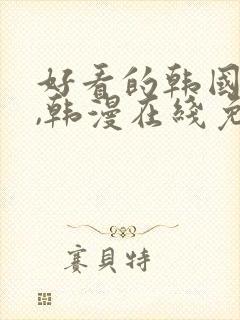 好看的韩国
,韩漫在线免
赛贝特